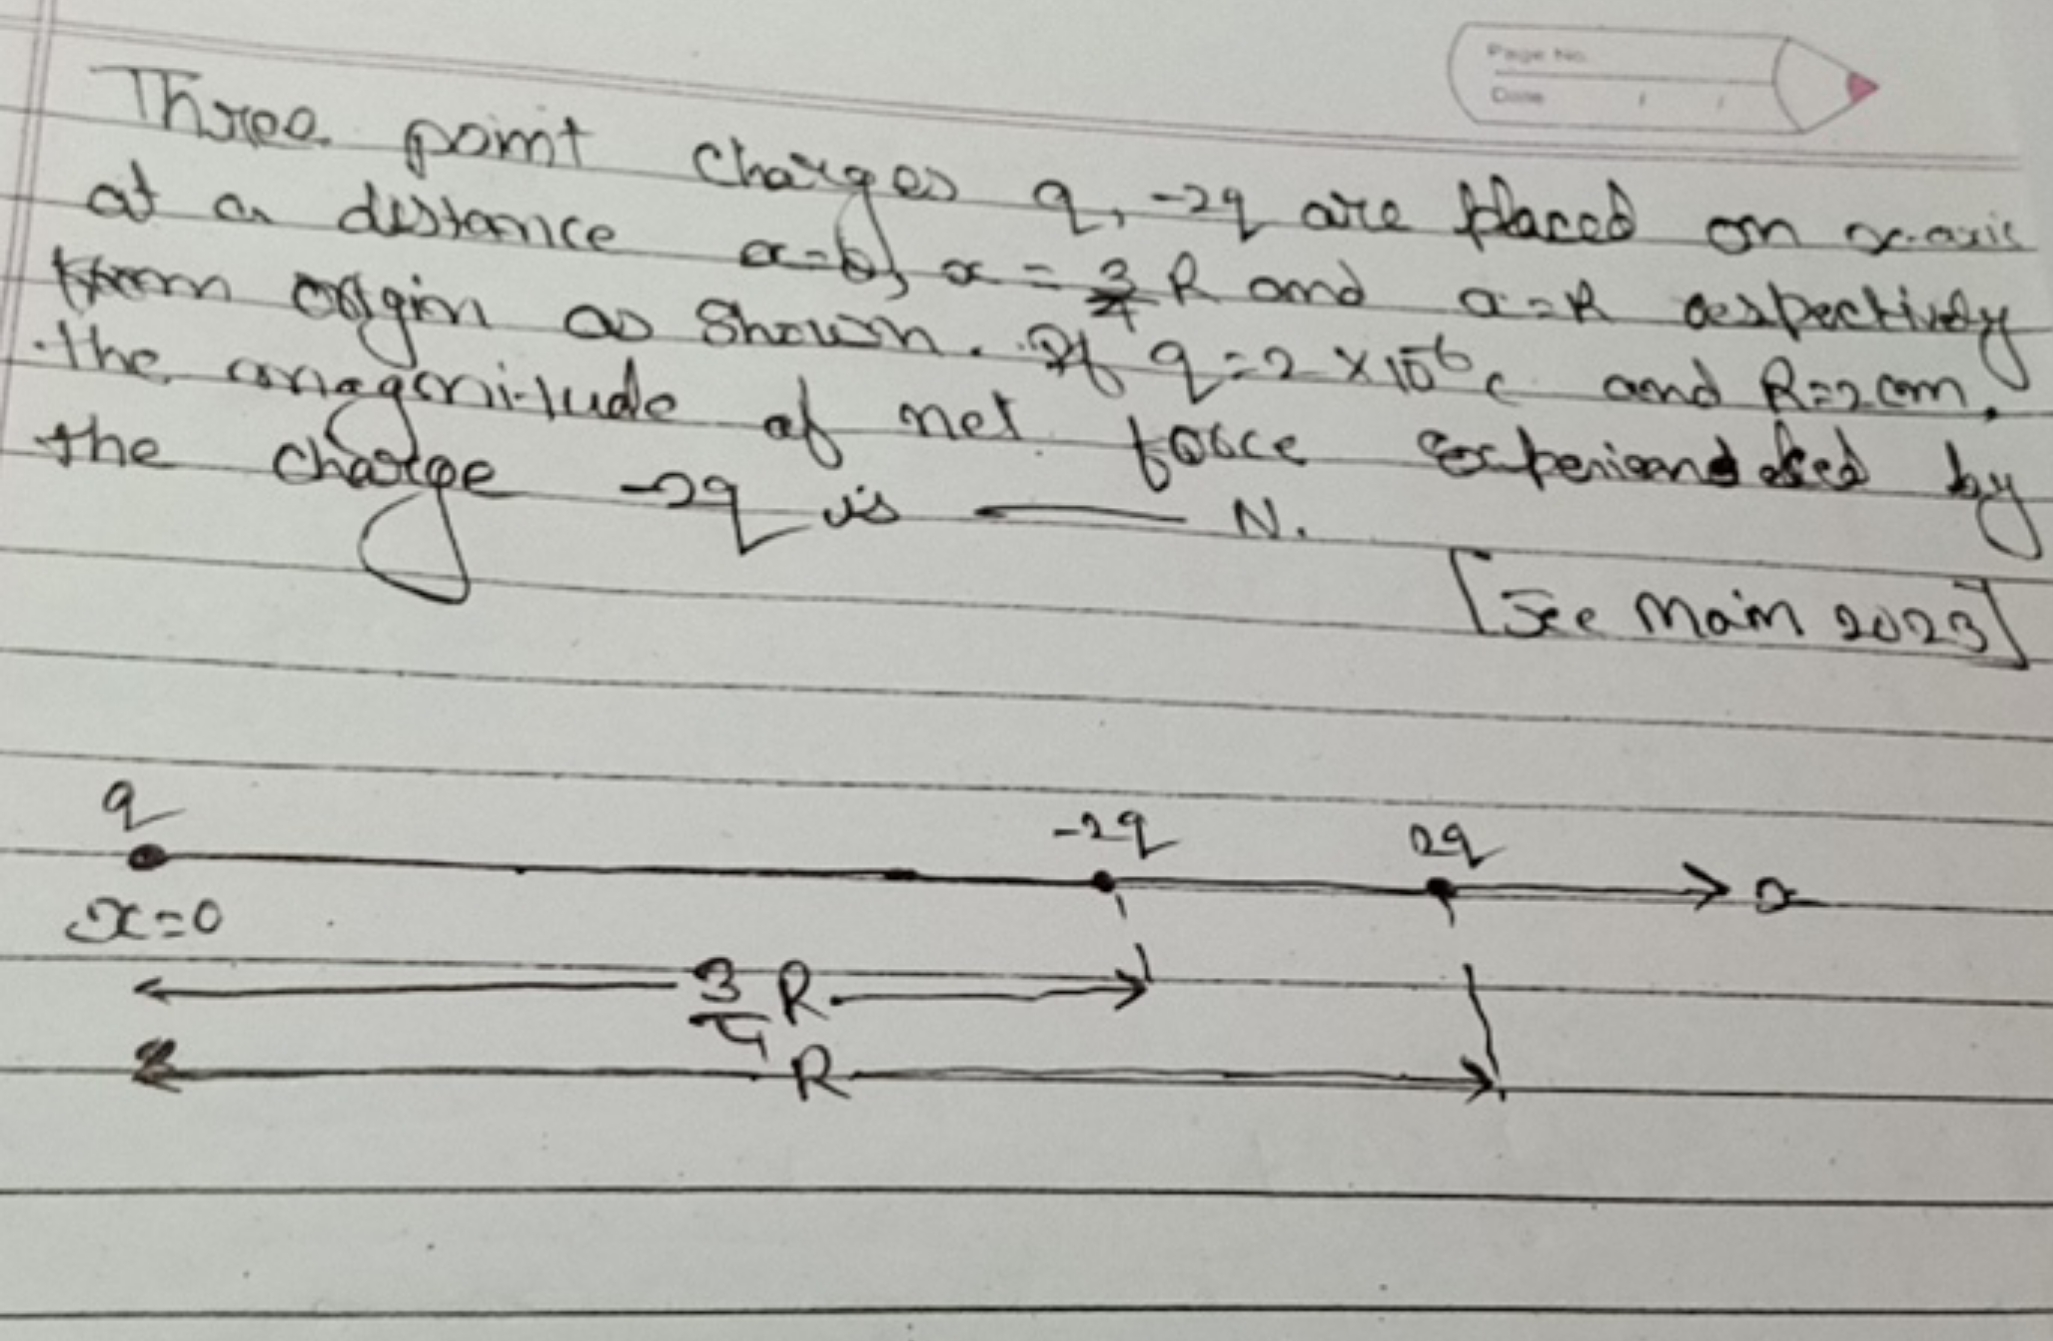 Page No.
Date / /
Three point charges q, -2q are placed on x-axis
at a distance x=0, x = 3/4 R and x=R respectively
from origin as shown. If q=2×10⁻⁶c and R=2cm,
the magnitude of net force experienced by
the charge -2q is —— N.
[Jee Main 2023]
q -2q 2q
x
x=0
3/4 R
R